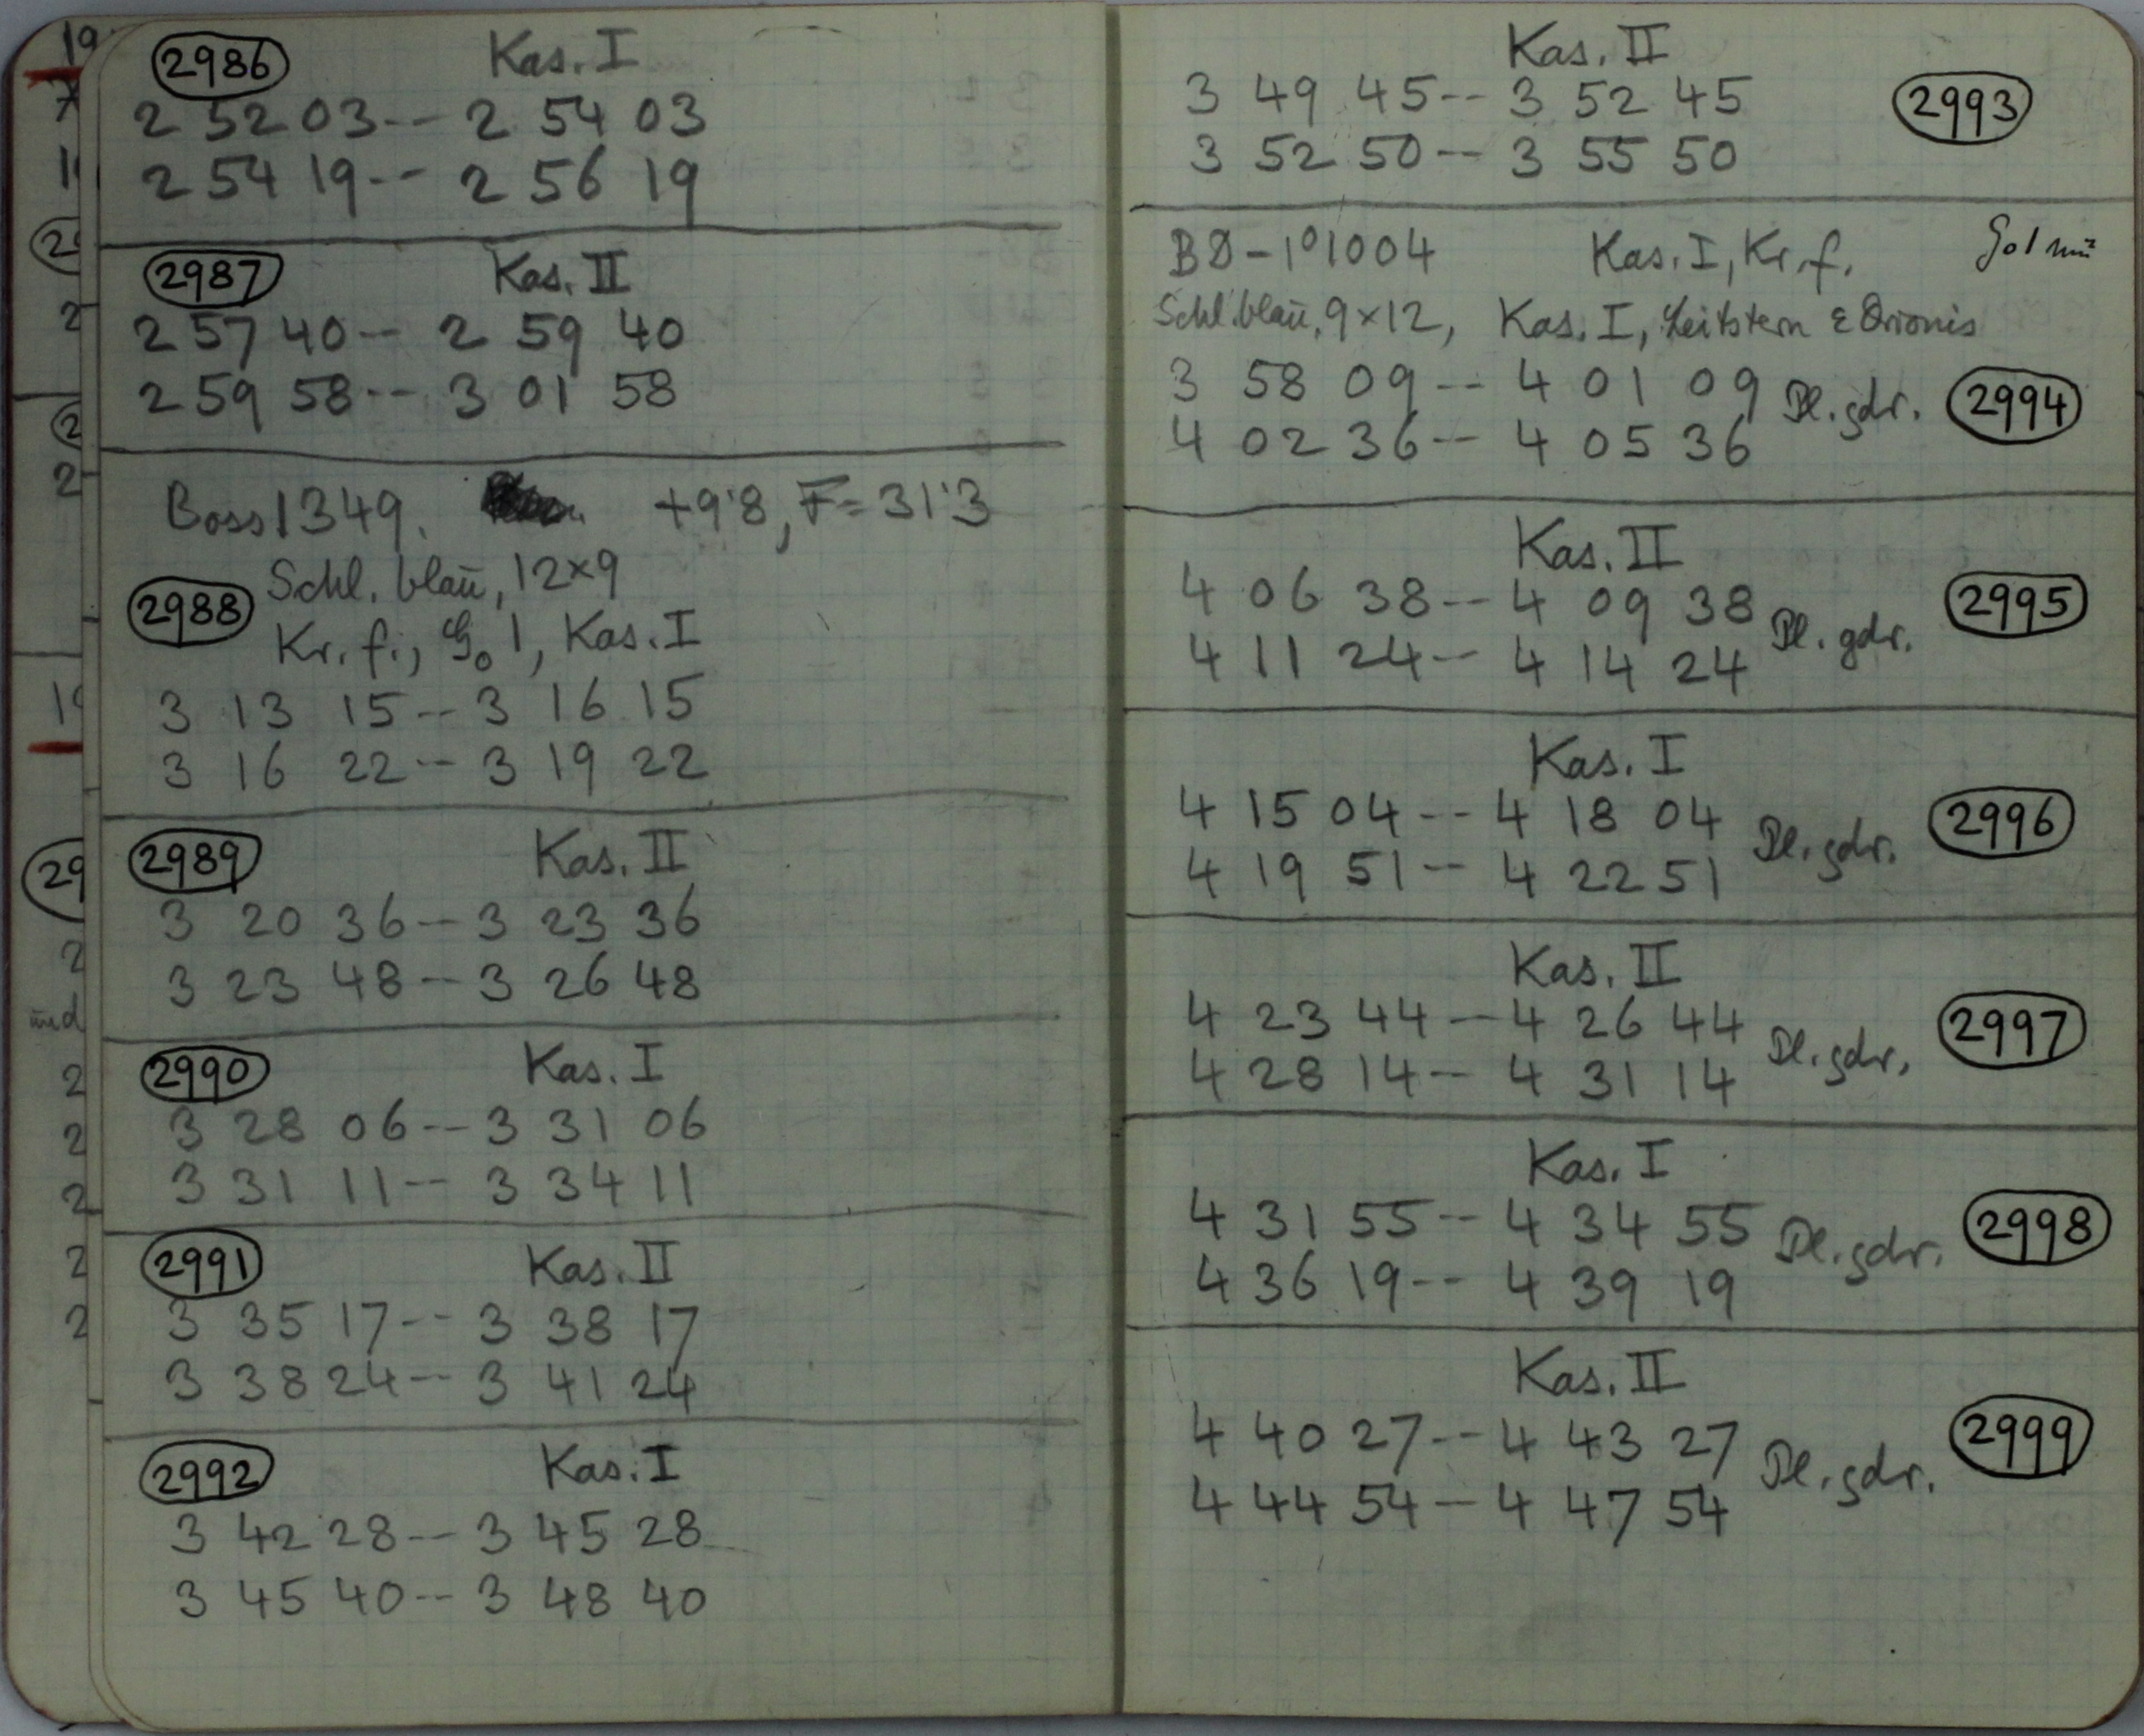 2986 Kas. I
2 52 03 -- 2 54 03
2 54 19 -- 2 56 19
2987 Kas. II
2 57 40 -- 2 59 40
2 59 58 -- 3 01 58
Boss 1349. +9'8, F = 31'3
Schl. blaū, 12×9
2988
Kr. f., G0 1, Kas. I
3 13 15 -- 3 16 15
3 16 22 -- 3 19 22
2989 Kas. II
3 20 36 -- 3 23 36
3 23 48 -- 3 26 48
2990 Kas. I
3 28 06 -- 3 31 06
3 31 11 -- 3 34 11
2991 Kas. II
3 35 17 -- 3 38 17
3 38 24 -- 3 41 24
2992 Kas. I
3 42 28 -- 3 45 28
3 45 40 -- 3 48 40
Kas. II
3 49 45 -- 3 52 45 2993
3 52 50 -- 3 55 50
BD -1°1004 Kas. I, Kr. f.
Schl. blaū, 9×12, Kas. I, Leitstern ε Orionis
3 58 09 -- 4 01 09 Pl. gdr. 2994
4 02 36 -- 4 05 36
Kas. II
4 06 38 -- 4 09 38 Pl. gdr. 2995
4 11 24 -- 4 14 24
Kas. I
4 15 04 -- 4 18 04 Pl. gdr. 2996
4 19 51 -- 4 22 51
Kas. II
4 23 44 -- 4 26 44 Pl. gdr. 2997
4 28 14 -- 4 31 14
Kas. I
4 31 55 -- 4 34 55 Pl. gdr. 2998
4 36 19 -- 4 39 19
Kas. II
4 40 27 -- 4 43 27 Pl. gdr. 2999
4 44 54 -- 4 47 54